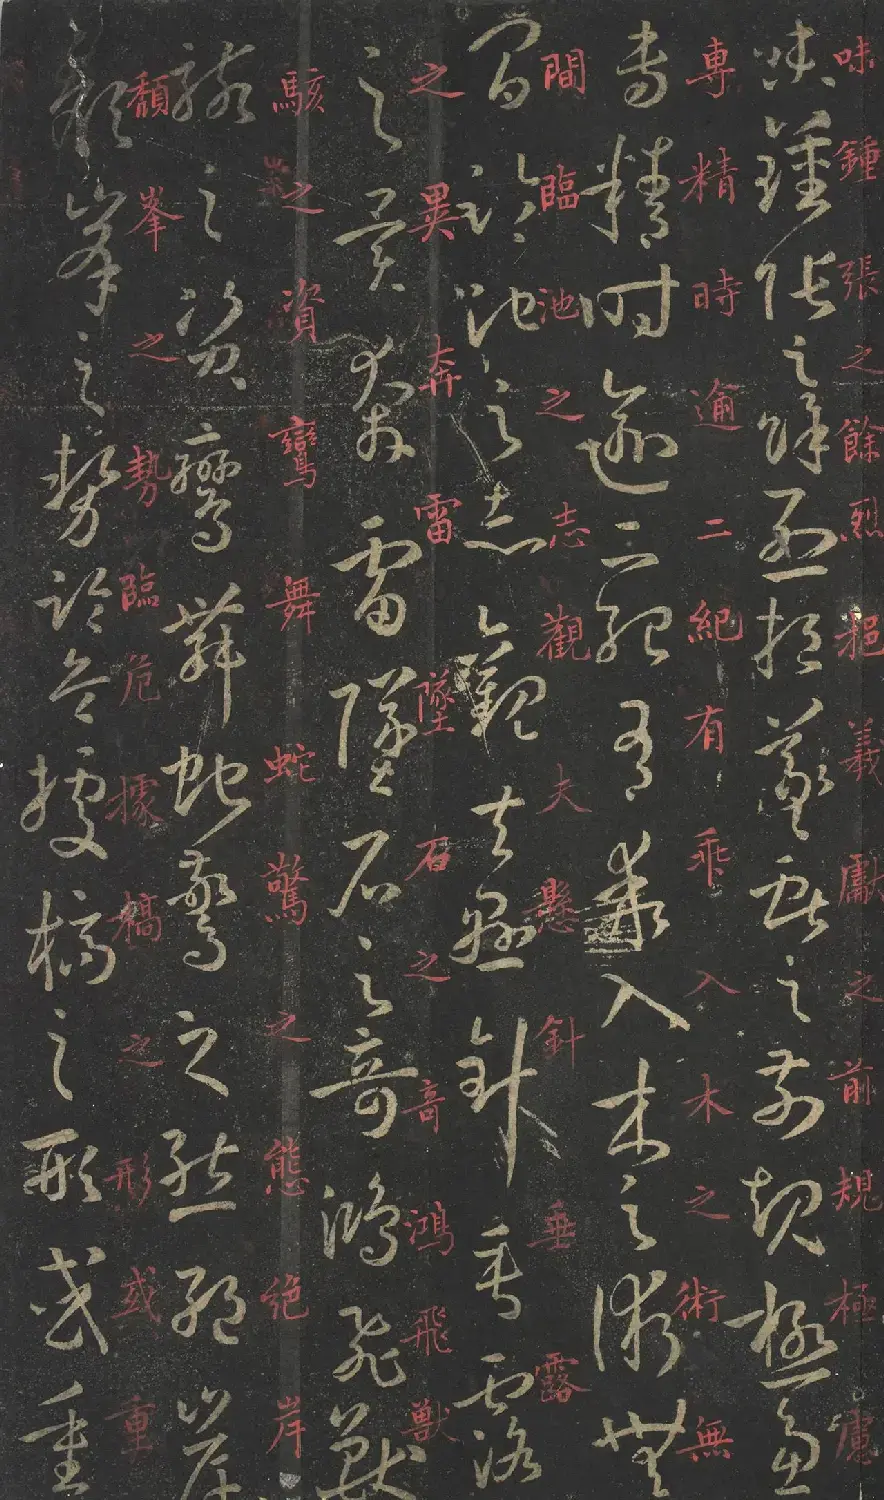 味鍾張之餘烈挹羲獻之前規極慮
味鍾張之餘烈挹羲獻之前規極慮
專精時逾二紀有乖入木之術無
專精時逾二紀有乖入木之術無
間臨池之志觀夫懸針垂露
間臨池之志觀夫懸針垂露
之異奔雷墜石之奇鴻飛獸
之異奔雷墜石之奇鴻飛獸
駭之資鸞舞蛇驚之態絶岸
駭之資鸞舞蛇驚之態絶岸
頽峯之勢臨危據槁之形或重
頽峯之勢臨危據槁之形或重